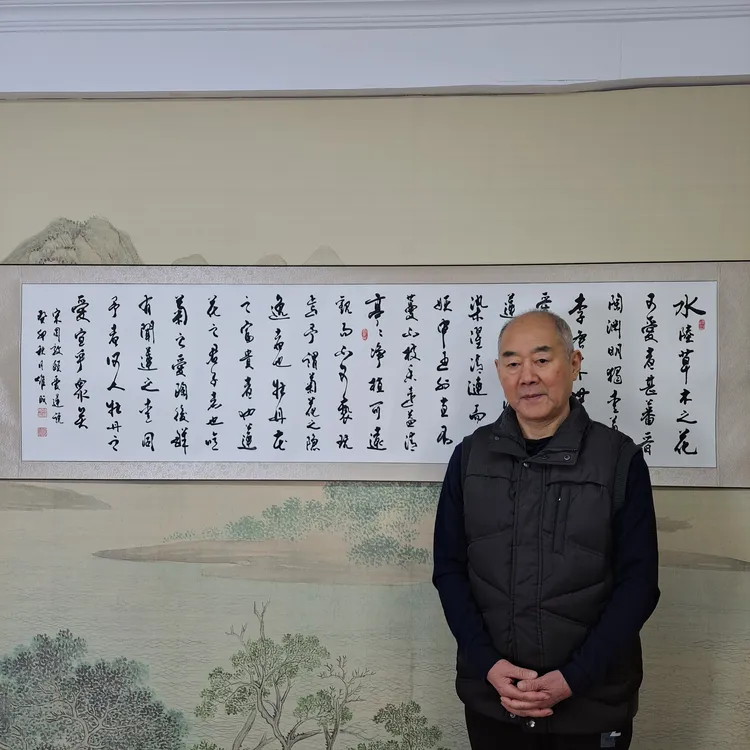 水陸草木之花
可愛者甚蕃晉
陶渊明獨愛
李唐
蓮
染濯清漣而
妖中通外直不
蔓不枝香遠益清
亭〻净植可遠
觀而不可褻玩
焉予謂菊花之隱
逸者也牡丹花
之富貴者也蓮
花之君子者也噫
菊之愛陶後鮮
有聞蓮之愛同
予者何人牡丹之
愛宜乎衆矣
宋周敦頤愛蓮說
癸卯秋月